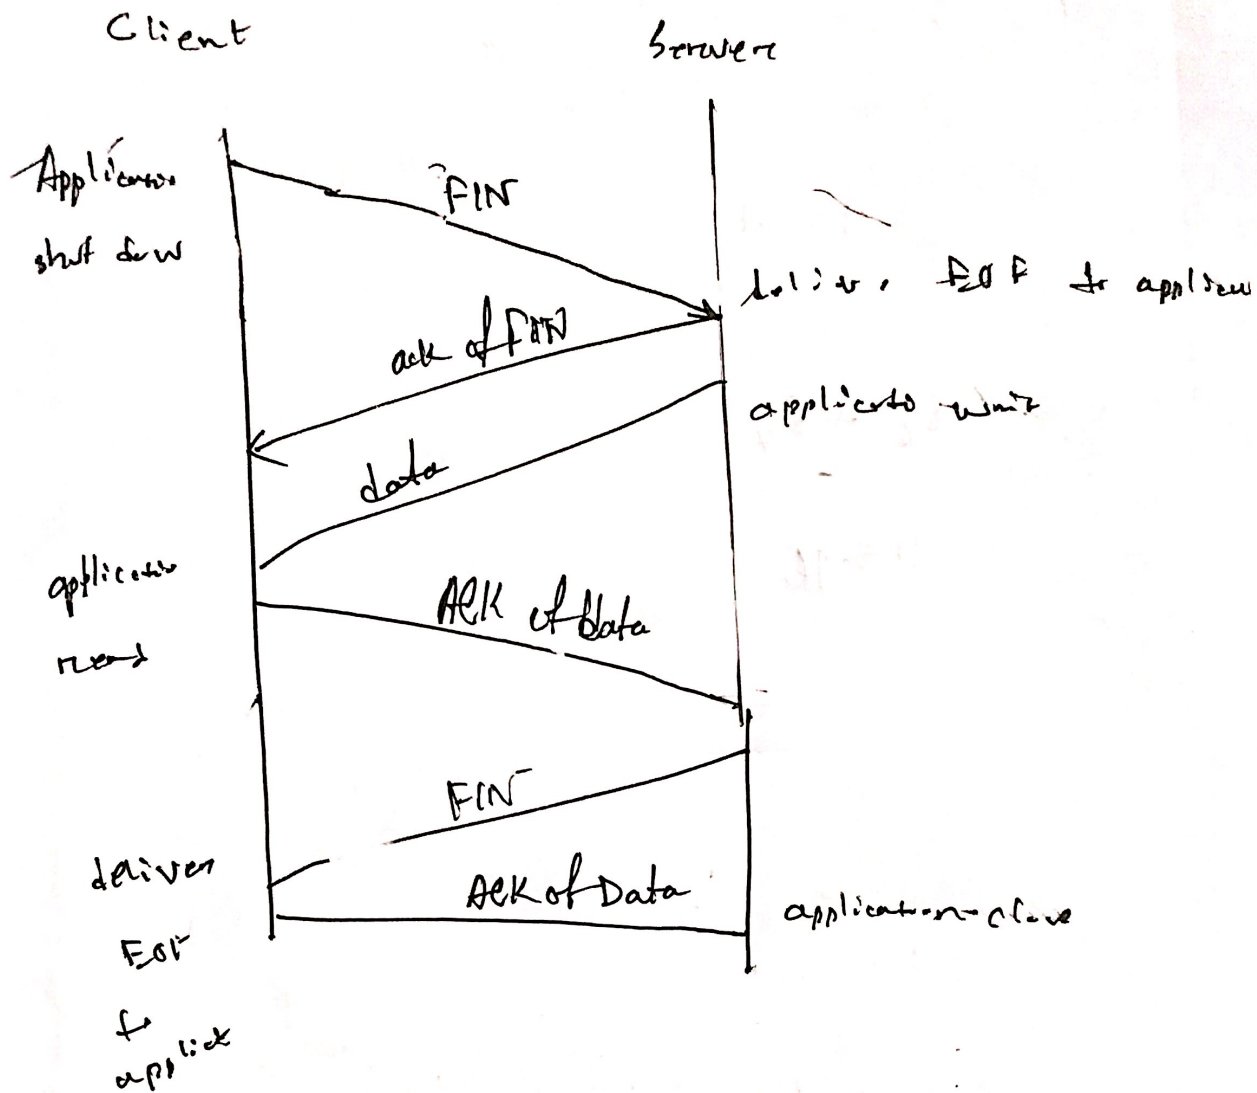 Client
Server
Application
shut down
FIN
deliver EOF to applica
ack of FIN
application write
data
application
read
ACK of data
FIN
deliver
EOF
to
applicat
ACK of Data
application close